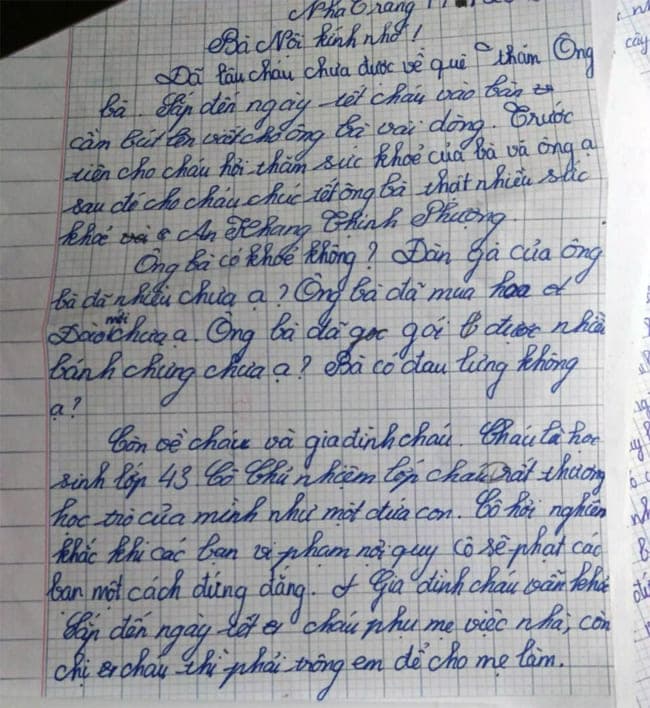 Nha Trang
Bà Nội kính nhớ!
Đã lâu cháu chưa được về quê thăm Ông
bà. Sắp đến ngày tết cháu vào bàn
cầm bút lên viết cho ông bà vài dòng. Trước
tiên cho cháu hỏi thăm sức khoẻ của bà và ông ạ
sau đó cho cháu chúc tết ông bà thật nhiều sức
khoẻ An Khang Thịnh Phượng.
Ông bà có khoẻ không? Đàn gà của ông
bà đã nhiều chưa ạ? Ông bà đã mua hoa
Đào mới chưa ạ. Ông bà đã gói được nhiều
bánh chưng chưa ạ? Bà có đau lưng không
ạ?
Còn về cháu và gia đình cháu. Cháu là học
sinh lớp 43 Cô Chủ nhiệm lớp cháu rất thương
học trò của mình như một đứa con. Cô hơi nghiên
khắc khi các bạn vi phạm nội quy cô sẽ phạt các
bạn một cách đứng đắng. Gia đình cháu vẫn khoẻ
Sắp đến ngày tết cháu phụ mẹ việc nhà, còn
chị cháu thì phải trông em để cho mẹ làm.